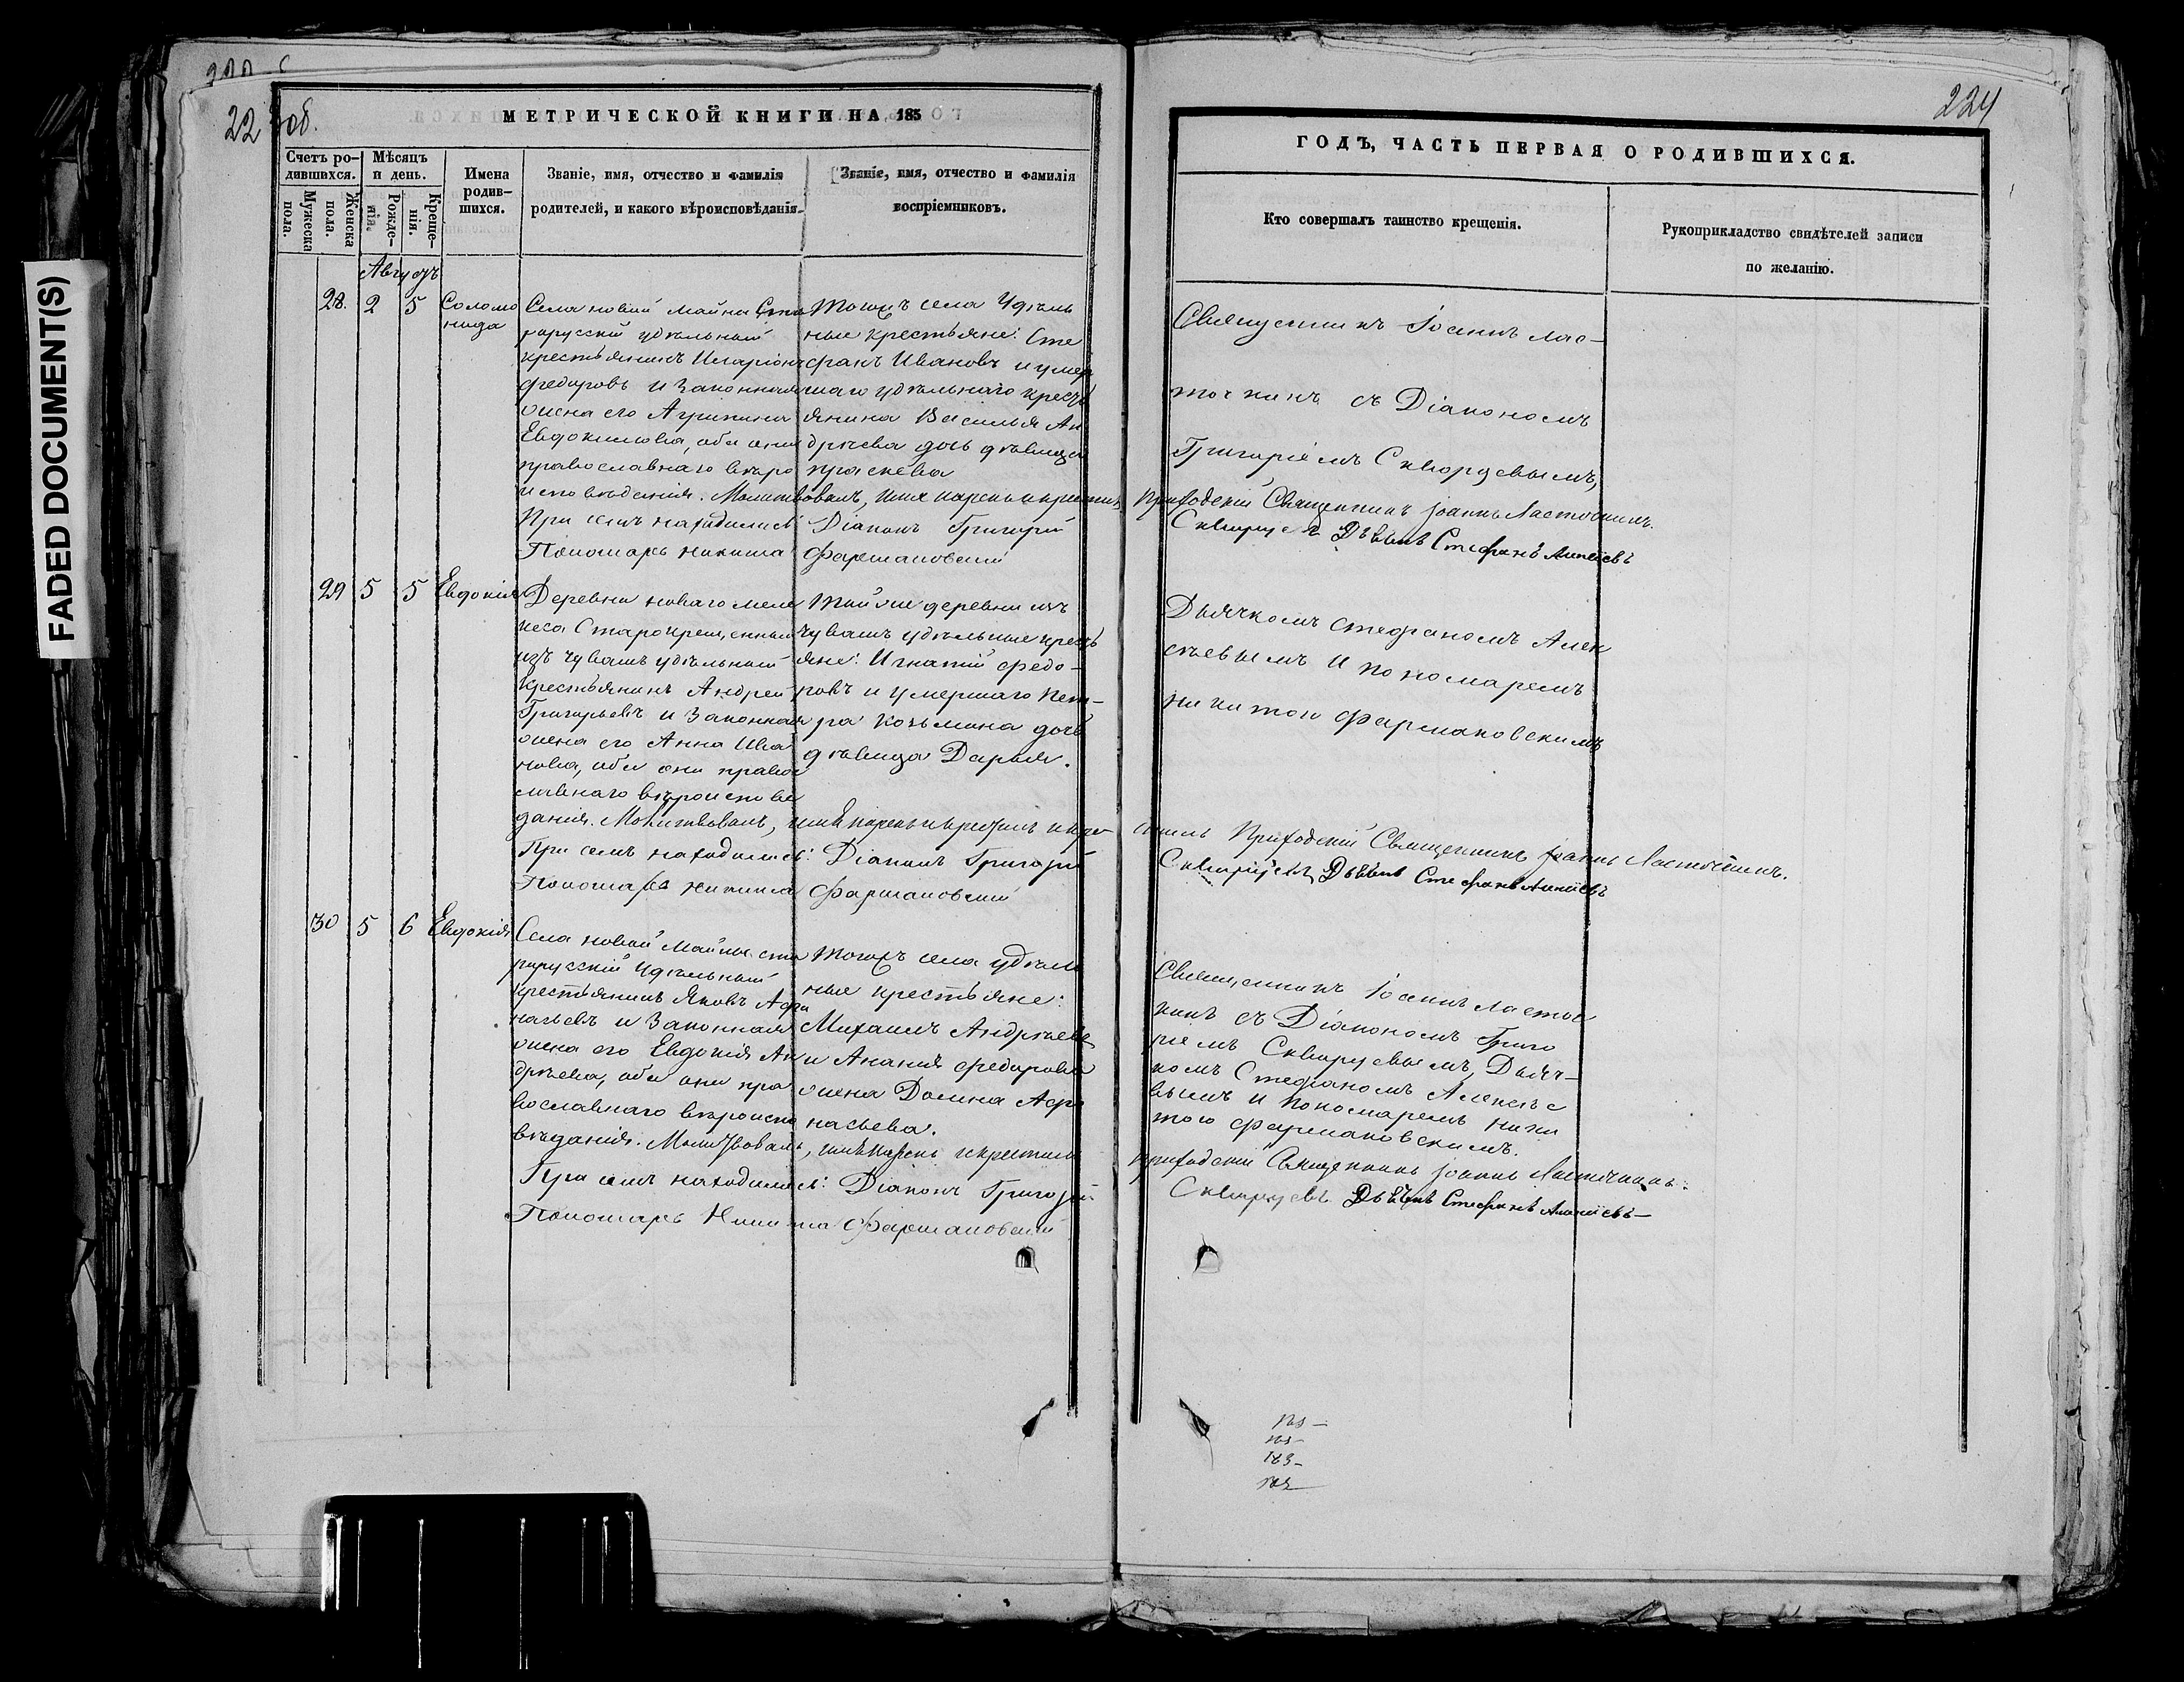 FADED DOCUMENT(S)
22 об.
МЕТРИЧЕСКОЙ КНИГИ НА 185
Счетъ ро-
дившихся.
Мужеска
пола.
Женска
пола.
Мѣсяцъ
и день.
Рожде-
нія.
Креще-
нія.
Имена
родив-
шихся.
Званіе, имя, отчество и фамилія
родителей, и какого вѣроисповѣданія.
Званіе, имя, отчество и фамилія
воспріемниковъ.
Августъ
28. 2 5
Соломо
нида
Села новой Майны Ста
рорусскій удѣльный
крестьянинъ Иларіонъ
Федоровъ и законная
жена его Агрипина
Евдокимова, оба они
православнаго вѣро
исповѣданія. Молитвовалъ, имя нарекъ и крестилъ
При семъ находились: Діаконъ Григорій
Пономарь Никита Фармаковскій
Тогожъ села Удѣль
ные крестьяне: Сте
фанъ Ивановъ и умер
шаго удѣльнаго кресть
янина Василья Ан
дрѣева дочь дѣвица
праскева
29 5 5
Евдокія
Деревни новаго меле
кеса Старокрещенный
изъ чувашъ удѣльный
крестьянинъ Андрей
Григорьевъ и законная
жена его Анна Ива
нова, оба они право
славнаго вѣроисповѣ
данія. Молитвовалъ, имя нарекъ и кре
При семъ находились: Діаконъ Григорій
Пономарь Никита Фармаковскій
Той же деревни изъ
чувашъ удѣльные кресть
яне: Игнатій Федо-
ровъ и умершаго Пет-
ра Козьмина дочь
дѣвица Дарья.
30 5 6
Евдокія
Села новой Майны ста
рорусскій Удѣльный
крестьянинъ Яковъ Афа
насьевъ и законная
жена его Евдокія Ан
дрѣева, оба они пра
вославнаго вѣроиспо
вѣданія. Молитвовалъ, имя нарекъ и крестилъ
При семъ находились: Діаконъ Григорій
Пономарь Никита Фармаковскій
Тогожъ села удѣль
ные крестьяне:
Михаилъ Андрѣевъ
и Ананія Федорова
жена Домна Афа
насьева.
224
ГОДЪ, ЧАСТЬ ПЕРВАЯ О РОДИВШИХСЯ.
Кто совершалъ таинство крещенія.
Рукоприкладство свидѣтелей записи
по желанію.
Священникъ Іоаннъ Лас-
точкинъ съ Діакономъ
Григоріемъ Скворцевымъ,
Приходскій Священникъ Іоаннъ Ласточкинъ.
Скворцевъ Дьячекъ Стефанъ Алексіевъ
Дьячкомъ Стефаномъ Алек
сѣевымъ и пономаремъ
никитою Фармаковскимъ
стилъ Приходскій Священникъ Іоаннъ Ласточкинъ.
Скворцевъ, Дьячекъ Стефанъ Алексіевъ
Священникъ Іоаннъ Ласточ
кинъ съ Діакономъ Григо
ріемъ Скворцевымъ, Дьяч-
комъ Стефаномъ Алексѣе
вымъ и пономаремъ ники
тою Фармаковскимъ.
Приходскій Священникъ Іоаннъ Ласточкинъ.
Скворцевъ Дьячекъ Стефанъ Алексіевъ